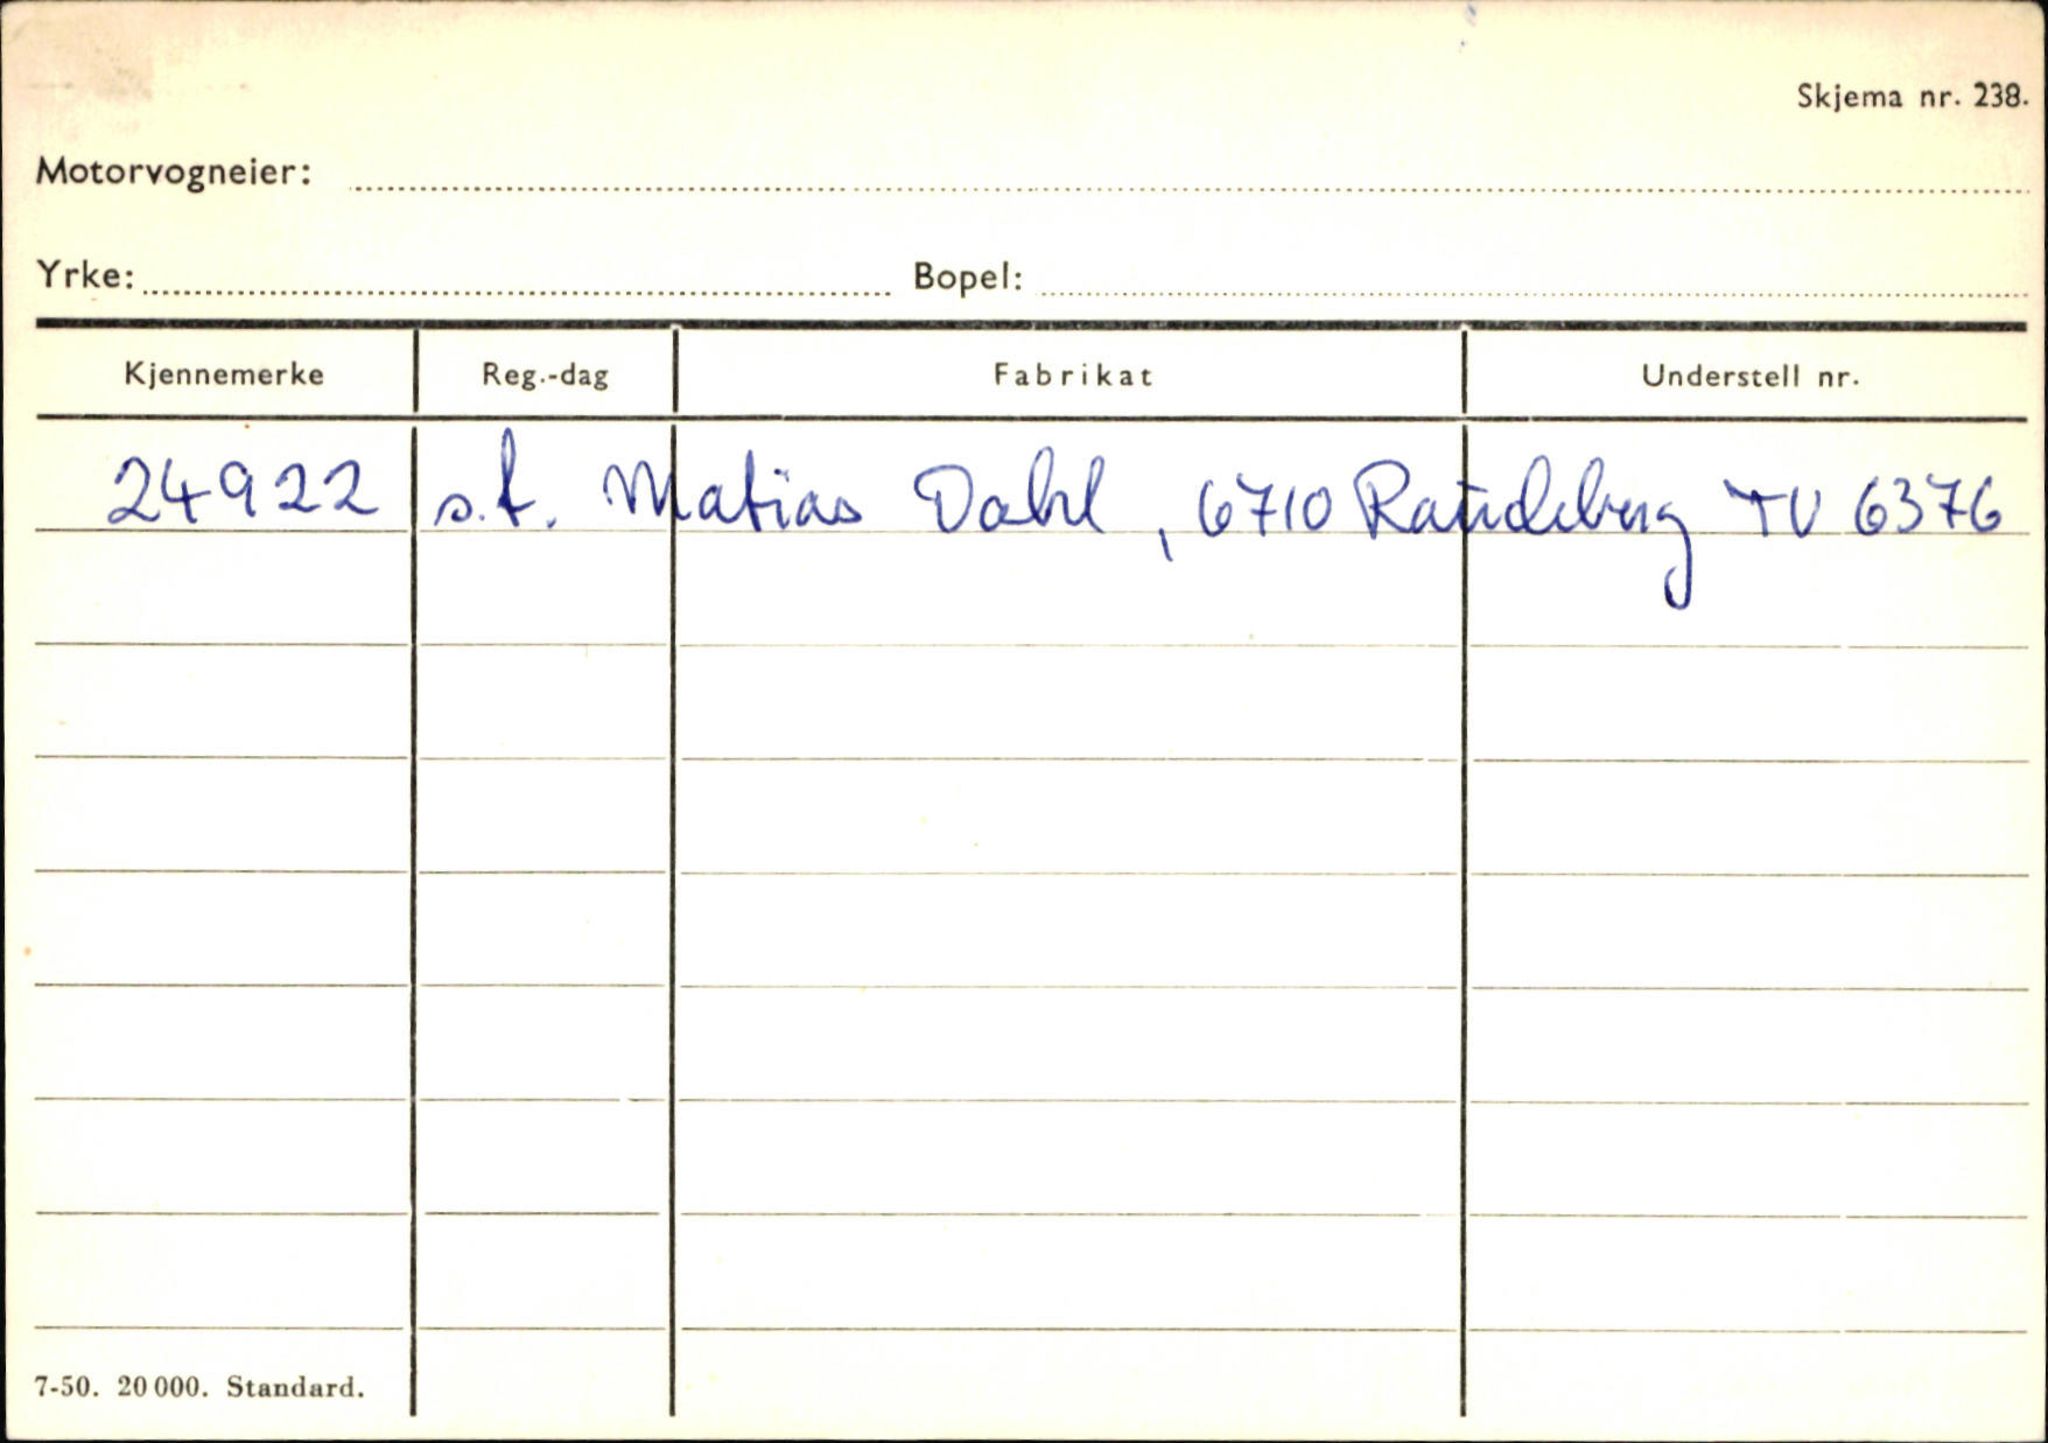 Skjema nr. 238.
Motorvogneier:
Yrke: Bopel:
Kjennemerke Reg.-dag Fabrikat Understell nr.
24922 s.t. Matias Dahl, 6710 Raudeberg TV 6376
7-50. 20 000. Standard.